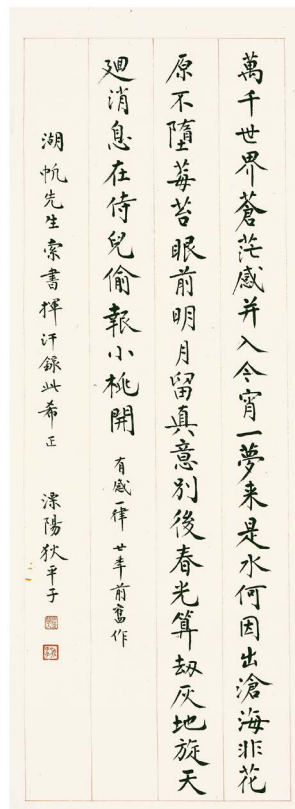 萬千世界蒼茫感并入今宵一夢来是水何因出滄海非花
原不墮莓苔眼前明月留真意別後春光算劫灰地旋天
廻消息在侍兒偷報小桃開
有感一律廿年前舊作
湖帆先生索書揮汗錄此希正
溧陽狄平子